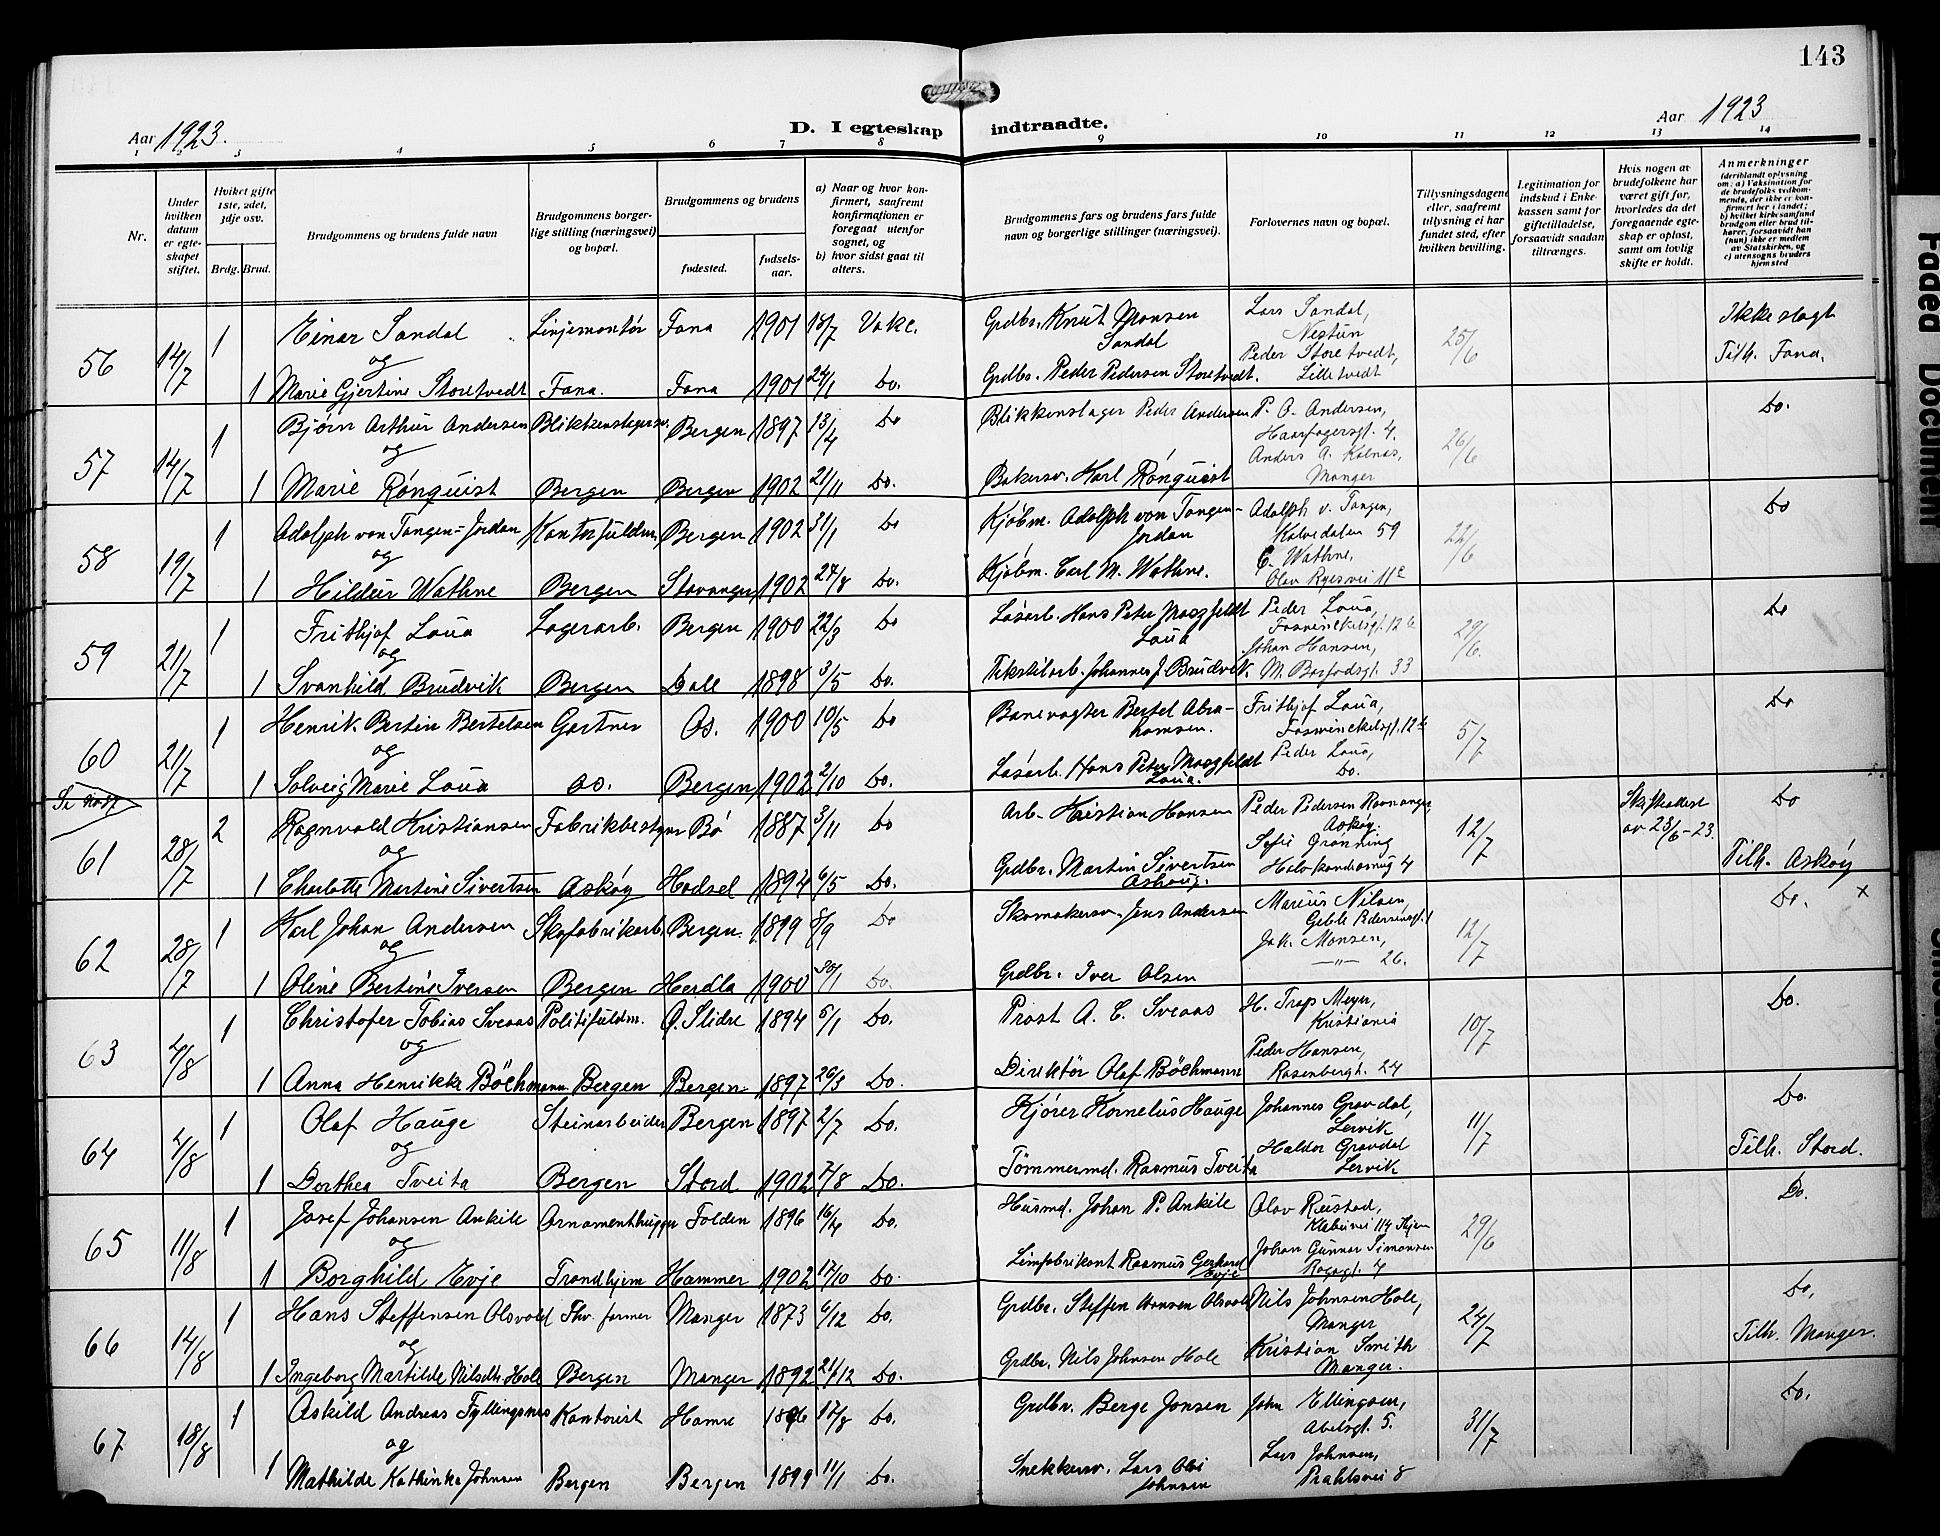 143
Aar 1923.
D. I egteskap indtraadte.
Aar 1923
1 2 3 4 5 6 7 8 9 10 11 12 13 14
Nr.
Under hvilken datum er egteskapet stiftet.
Hvilket gifte 1ste, 2det, 3dje osv.
Brdg. Brud.
Brudgommens og brudens fulde navn
Brudgommens borgerlige stilling (næringsvei) og bopæl.
Brudgommens og brudens
fødested.
fødselsaar.
a) Naar og hvor konfirmert, saafremt konfirmationen er foregaat utenfor sognet, og
b) hvor sidst gaat til alters.
Brudgommens fars og brudens fars fulde navn og borgerlige stillinger (næringsvei).
Forlovernes navn og bopæl.
Tillysningsdagene eller, saafremt tillysning ei har fundet sted, efter hvilken bevilling.
Legitimation for indskud i Enkekassen samt for giftetilladelse, forsaavidt saadan tiltrænges.
Hvis nogen av brudefolkene har været gift før, hvorledes da det foregaaende egteskap er opløst, samt om lovlig skifte er holdt.
Anmerkninger
(deriblandt oplysning om: a) Vaksination for de brudefolks vedkommende, der ikke er konfirmert her i landet; b) hvilket kirkesamfund brudgom eller brud tilhører, forsaavidt han (hun) ikke er medlem av Statskirken, og c) utensogns bruders hjemsted
56 14/7 1 Einar Sandal Linjemontør Fana 1901 18/7 Vake. Grdbr. Knut Monsen Sandal Lars Sandal, Nestun 25/6 Ikke slegt
og Peder Storetvedt, Lilletvedt Tilh. Fana.
1 Marie Gjertine Storetvedt Fana. Fana 1901 24/1 Do. Grdbr. Peder Pedersen Storetvedt.
57 14/7 1 Bjørn Arthur Andersen Blikkenslagersv. Bergen 1897 13/4 Do Blikkenslager Peder Andersen P. A. Andersen, Haarfagersgt. 4. 26/6 Do.
og Anders A. Kolnas, Manger
1 Marie Rönquist Bergen Bergen 1902 21/11 Do. Bakersv. Karl Rönquist
58 19/7 1 Adolph von Tangen-Jordan Kontorfuldm. Bergen 1902 31/1 Do Kjøbm. Adolph von Tangen-Jordan Adolph v. Tangen, Kalvedalen 59 22/6 Do
og C. Wathne, Olav Ryesvei 11c
1 Hildur Wathne Bergen Stavanger 1902 27/8 Do. Kjøbm. Carl M. Wathne.
59 21/7 1 Frithjof Loua Lagerarb. Bergen 1900 22/3 Do Løsarb. Hans Peter Maszfeldt Loua Peder Loua, Foswinckelsgt. 12 b 29/6. Do
og Johan Hansen, M. Barfodsgt. 33
1 Svanhild Brudvik Bergen Dale 1898 3/5 Do. Tekstilarb. Johannes J. Brudvik.
60 21/7 1 Henrik Bertin Bertelsen Gartner Os. 1900 10/5 Do Banevagter Bertel Abrahamsen. Frithjof Loua, Foswinckelsgt. 12b 5/7 Do
og Peder Loua, Do.
1 Solveig Marie Loua Os. Bergen 1902 2/10 Do. Løsarb. Hans Peter Maszfeldt Loua.
61 28/7 2 Ragnvald Kristiansen Fabrikbestyrer Bø 1887 3/11 Do Arb. Kristian Hansen Peder Pedersen Ravnanger, Askøy. 12/7 Skifteattest av 23/6-23. Do
og Sofie Grønning Tilh. Askøy
1 Charlotte Martine Sivertsen Askøy Hadsel 1894 6/5 Do. Grdbr. Martin Sivertsen
62 28/7 1 Karl Johan Andersen Skofabrikarb. Bergen. 1899 8/9 Do Skomakersv. Jens Andersen Marius Nilsen, Gelele Pedersensgt. 1 12/7 Do. x
og Jak. Monsen, —"— 26.
1 Oline Bertine Iversen Bergen Herdla 1900 30/1 Do. Grdbr. Iver Olsen
63 4/8 1 Christofer Tobias Sveaas Politifuldm. Ø. Slidre 1894 5/1 Do. Prost A. C. Sveaas H. Trap Meyer, Kristiania 10/7 Do.
og Peder Hansen, Rosenbergt. 24
1 Anna Henrikke Böchmann Bergen Bergen 1897 26/3 Do. Direktør Olaf Böchmann
64 4/8 1 Olaf Hauge Steinarbeider Bergen 1897 2/7 Do. Kjører Kornelius Hauge Johannes Gravdal, Lervik 11/7 Do.
og Haldor Gravdal Lervik Tilh. Stord.
1 Dorthea Tveita Bergen Stord 1902 7/8 Do. Tømmermd. Rasmus Tveita
65 11/8 1 Josef Johansen Ankile Ornamenthugger Folden 1896 16/4 Do. Husmd. Johan P. Ankile Olav Rustad, Klæbuvei 114 Thjem 29/6 Do.
og Johan Gunnar Simonsen
1 Borghild Evje Trondhjem Hammer 1902 17/10 Do. Limfabrikant Rasmus Gerhard Evje
66 14/8 1 Hans Steffensen Olsvold Fhv. farmer Manger 1873 6/12 Do. Grdbr. Steffen Hansen Olsvold Nils Johnsen Hole, Manger 24/7 Do.
og Kristian Smith Manger. Tilh. Manger.
1 Ingeborg Martilde Nilsdtr. Hole Bergen Manger 1892 21/12 Do. Grdbr. Nils Johnsen Hole
67 18/8 1 Askild Andreas Fyllingsnes Kontorist Hamre 1896 17/8 Do. Grdbr. Berge Jonsen John Ellingsen, Abelsgt. 5. 31/7 Do.
og Lars Johnsen, Prahlsvei 8
1 Mathilde Kathinka Johnsen Bergen Bergen 1899 11/1 Do. Snekkersv. Lars Johnsen
Faded Document